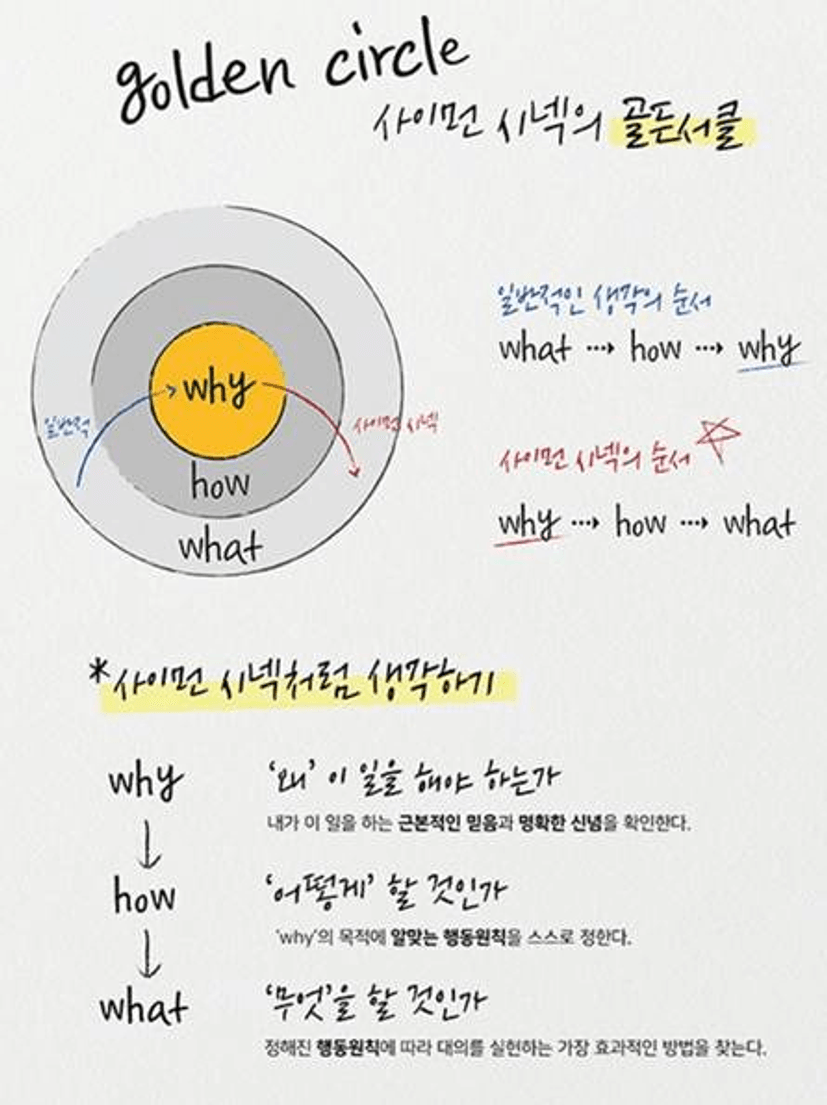 golden circle
사이먼 시넥의 골든서클
일반적인 생각의 순서
what ···→ how ···→ why
why
일반적
사이먼 시넥
사이먼 시넥의 순서
how
why ···→ how ···→ what
what
*사이먼 시넥처럼 생각하기
why
'왜' 이 일을 해야 하는가
내가 이 일을 하는 근본적인 믿음과 명확한 신념을 확인한다.
how
'어떻게' 할 것인가
'why'의 목적에 알맞는 행동원칙을 스스로 정한다.
what
'무엇'을 할 것인가
정해진 행동원칙에 따라 대의를 실현하는 가장 효과적인 방법을 찾는다.